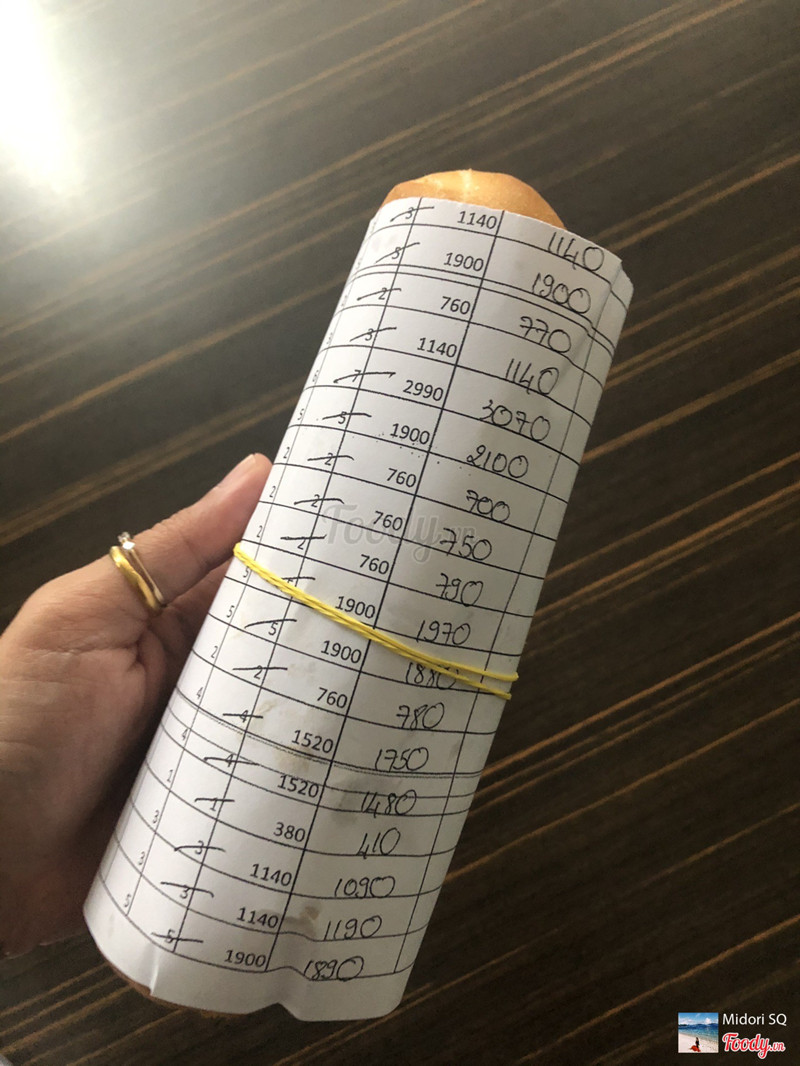 3 1140 1140
5 1900 1900
2 760 770
3 1140 1140
7 2990 3070
5 5 1900 2100
2 2 760 700
2 2 760 750
2 2 760 790
5 1900 1970
5 5 1900 1880
2 2 760 780
4 4 1520 1750
4 4 1520 1480
1 1 380 410
3 3 1140 1090
3 3 1140 1190
5 5 1900 1890
Foody.vn
Midori SQ
Foody.vn